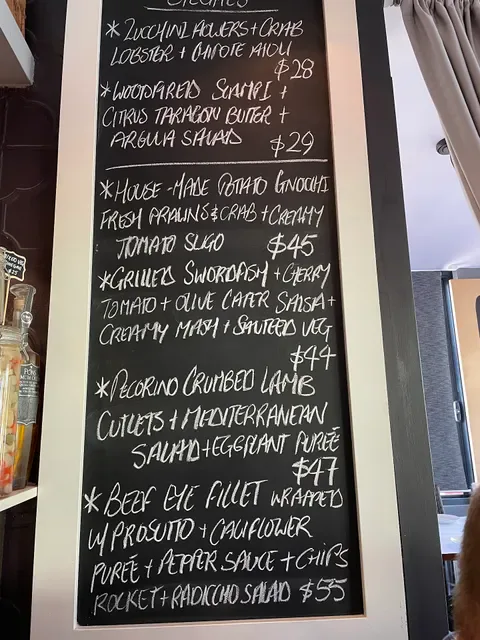 SPECIALS
*ZUCCHINI FLOWERS + CRAB
LOBSTER + CHIPOTE AIOLI
$28
*WOODFIRED SCAMPI +
CITRUS TARAGON BUTTER +
ARGULA SALAD $29
*HOUSE-MADE POTATO GNOCCHI
FRESH PRAWNS & CRAB + CREAMY
TOMATO SUGO $45
*GRILLED SWORDFISH + CHERRY
TOMATO + OLIVE CAPER SALSA +
CREAMY MASH + SAUTEED VEG
$44
*PECORINO CRUMBED LAMB
CUTLETS + MEDITERRANEAN
SALAD + EGGPLANT PUREÉ
$47
*BEEF EYE FILLET WRAPPED
W/ PROSUITO + CAULIFLOWER
PUREÉ + PEPPER SAUCE + CHIPS
ROCKET + RADICCHO SALAD $55